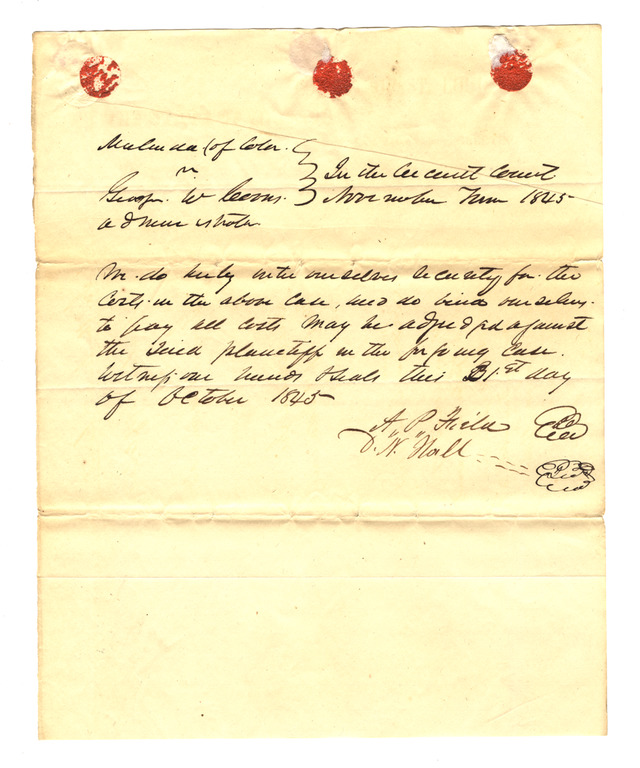 Malinda (of Color.
vs
George W Coons.
administrator
In the Circuit Court
November Term 1845
We do hereby enter ourselves security for the
Costs in the above case, and do bind ourselves
to pay all costs may be adjudged against
the said plaintiff in the forgoing case.
Witness our hands & seals this 31st day
of October 1845
A, P, Field Seal
D. N. Hall Seal